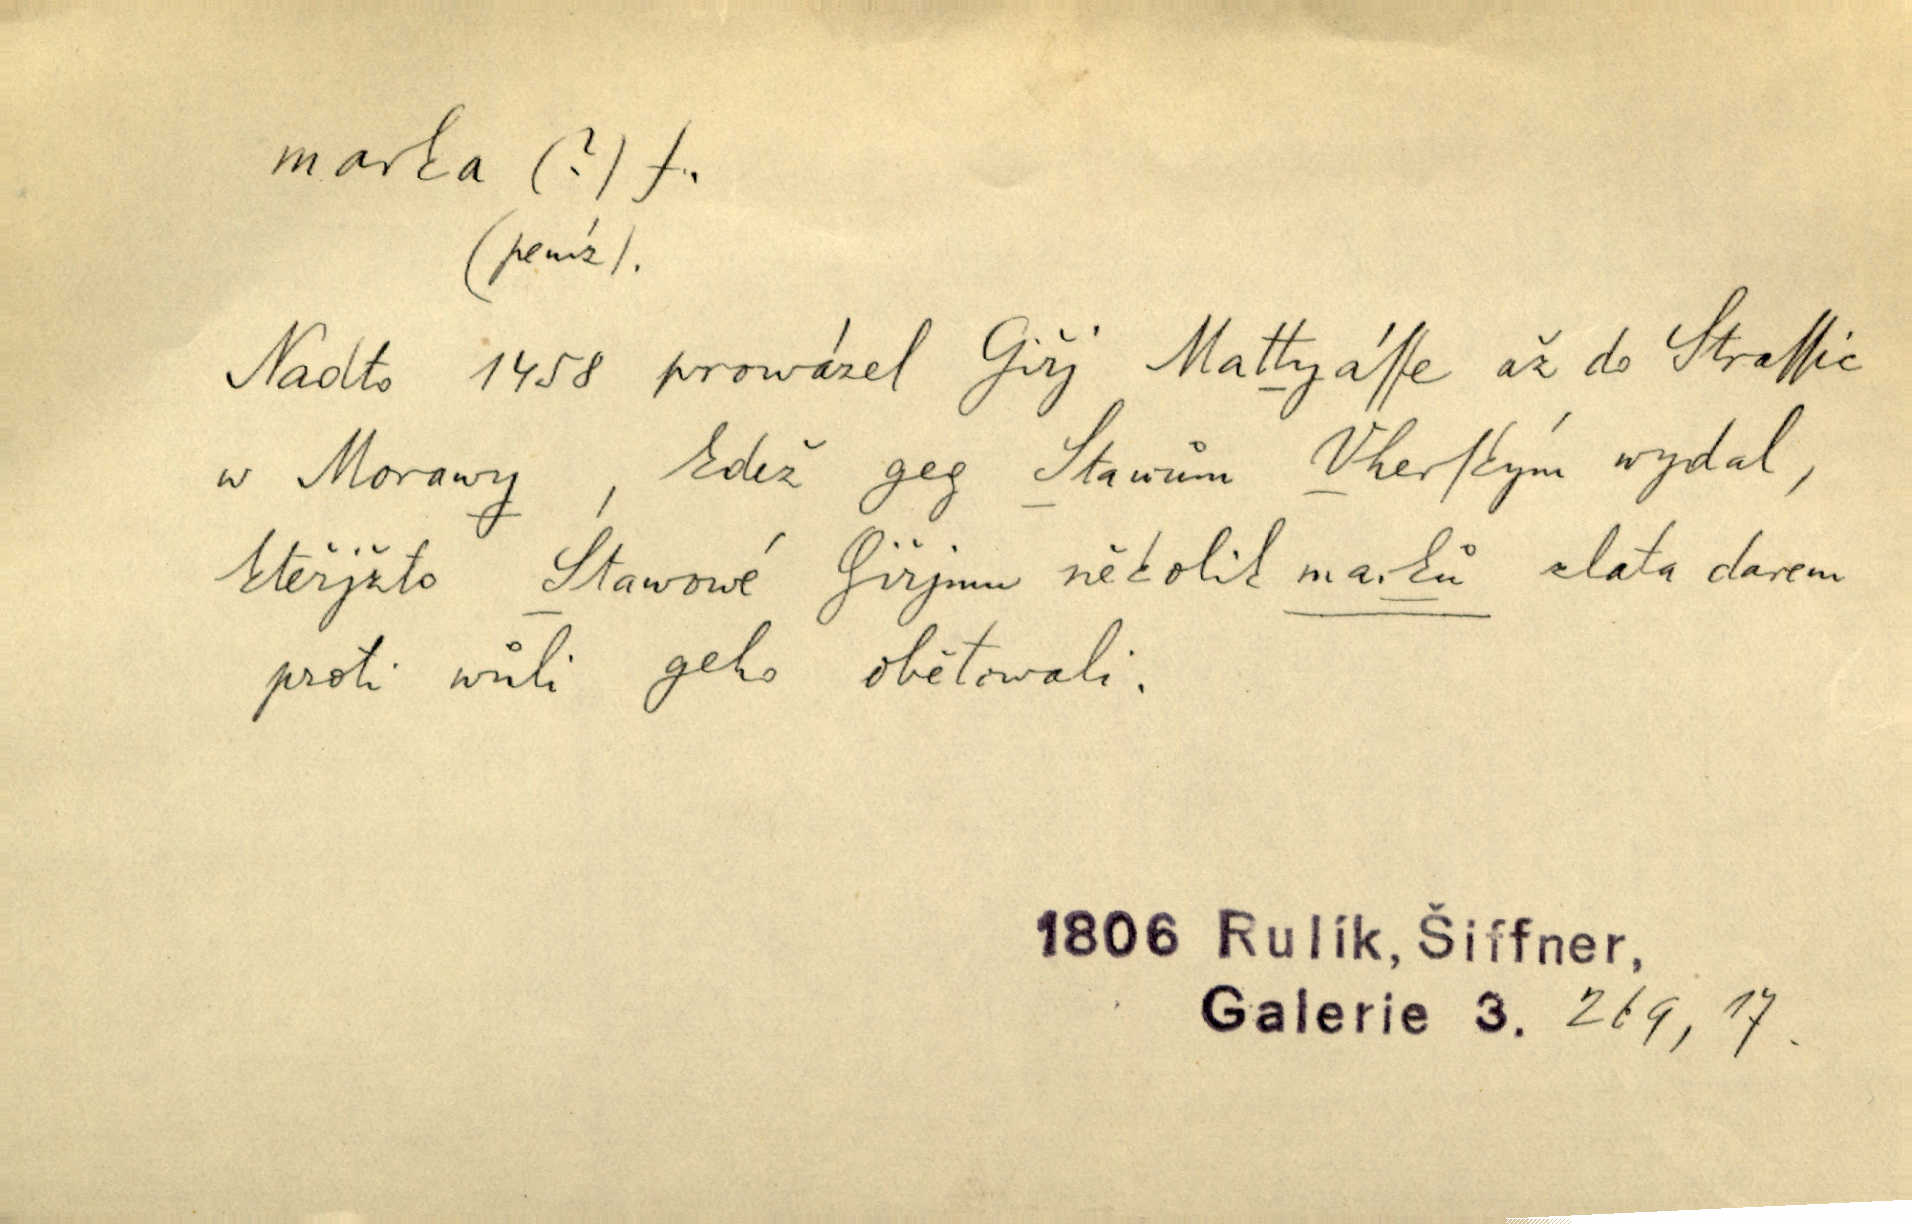 marka (?) f.
(peníz).
Nadto 1458 prowázel Giřj Mattyáſſe až do Straſſic
w Morawy, kdež geg Stawům Vherſkým wydal,
kteřjžto Stawowé Giřjmu několik marků zlata darem
proti wůli geho obětowali.
1806 Rulík, Šiffner,
Galerie 3. 269, 17.